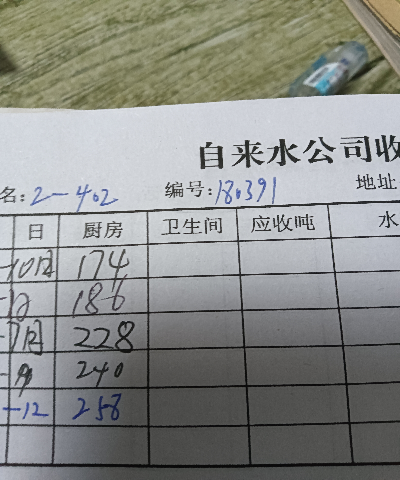 自来水公司收
名: 2-402 编号: 180391 地址
日 厨房 卫生间 应收吨 水
10月 174
186
7月 228
240
-12 258